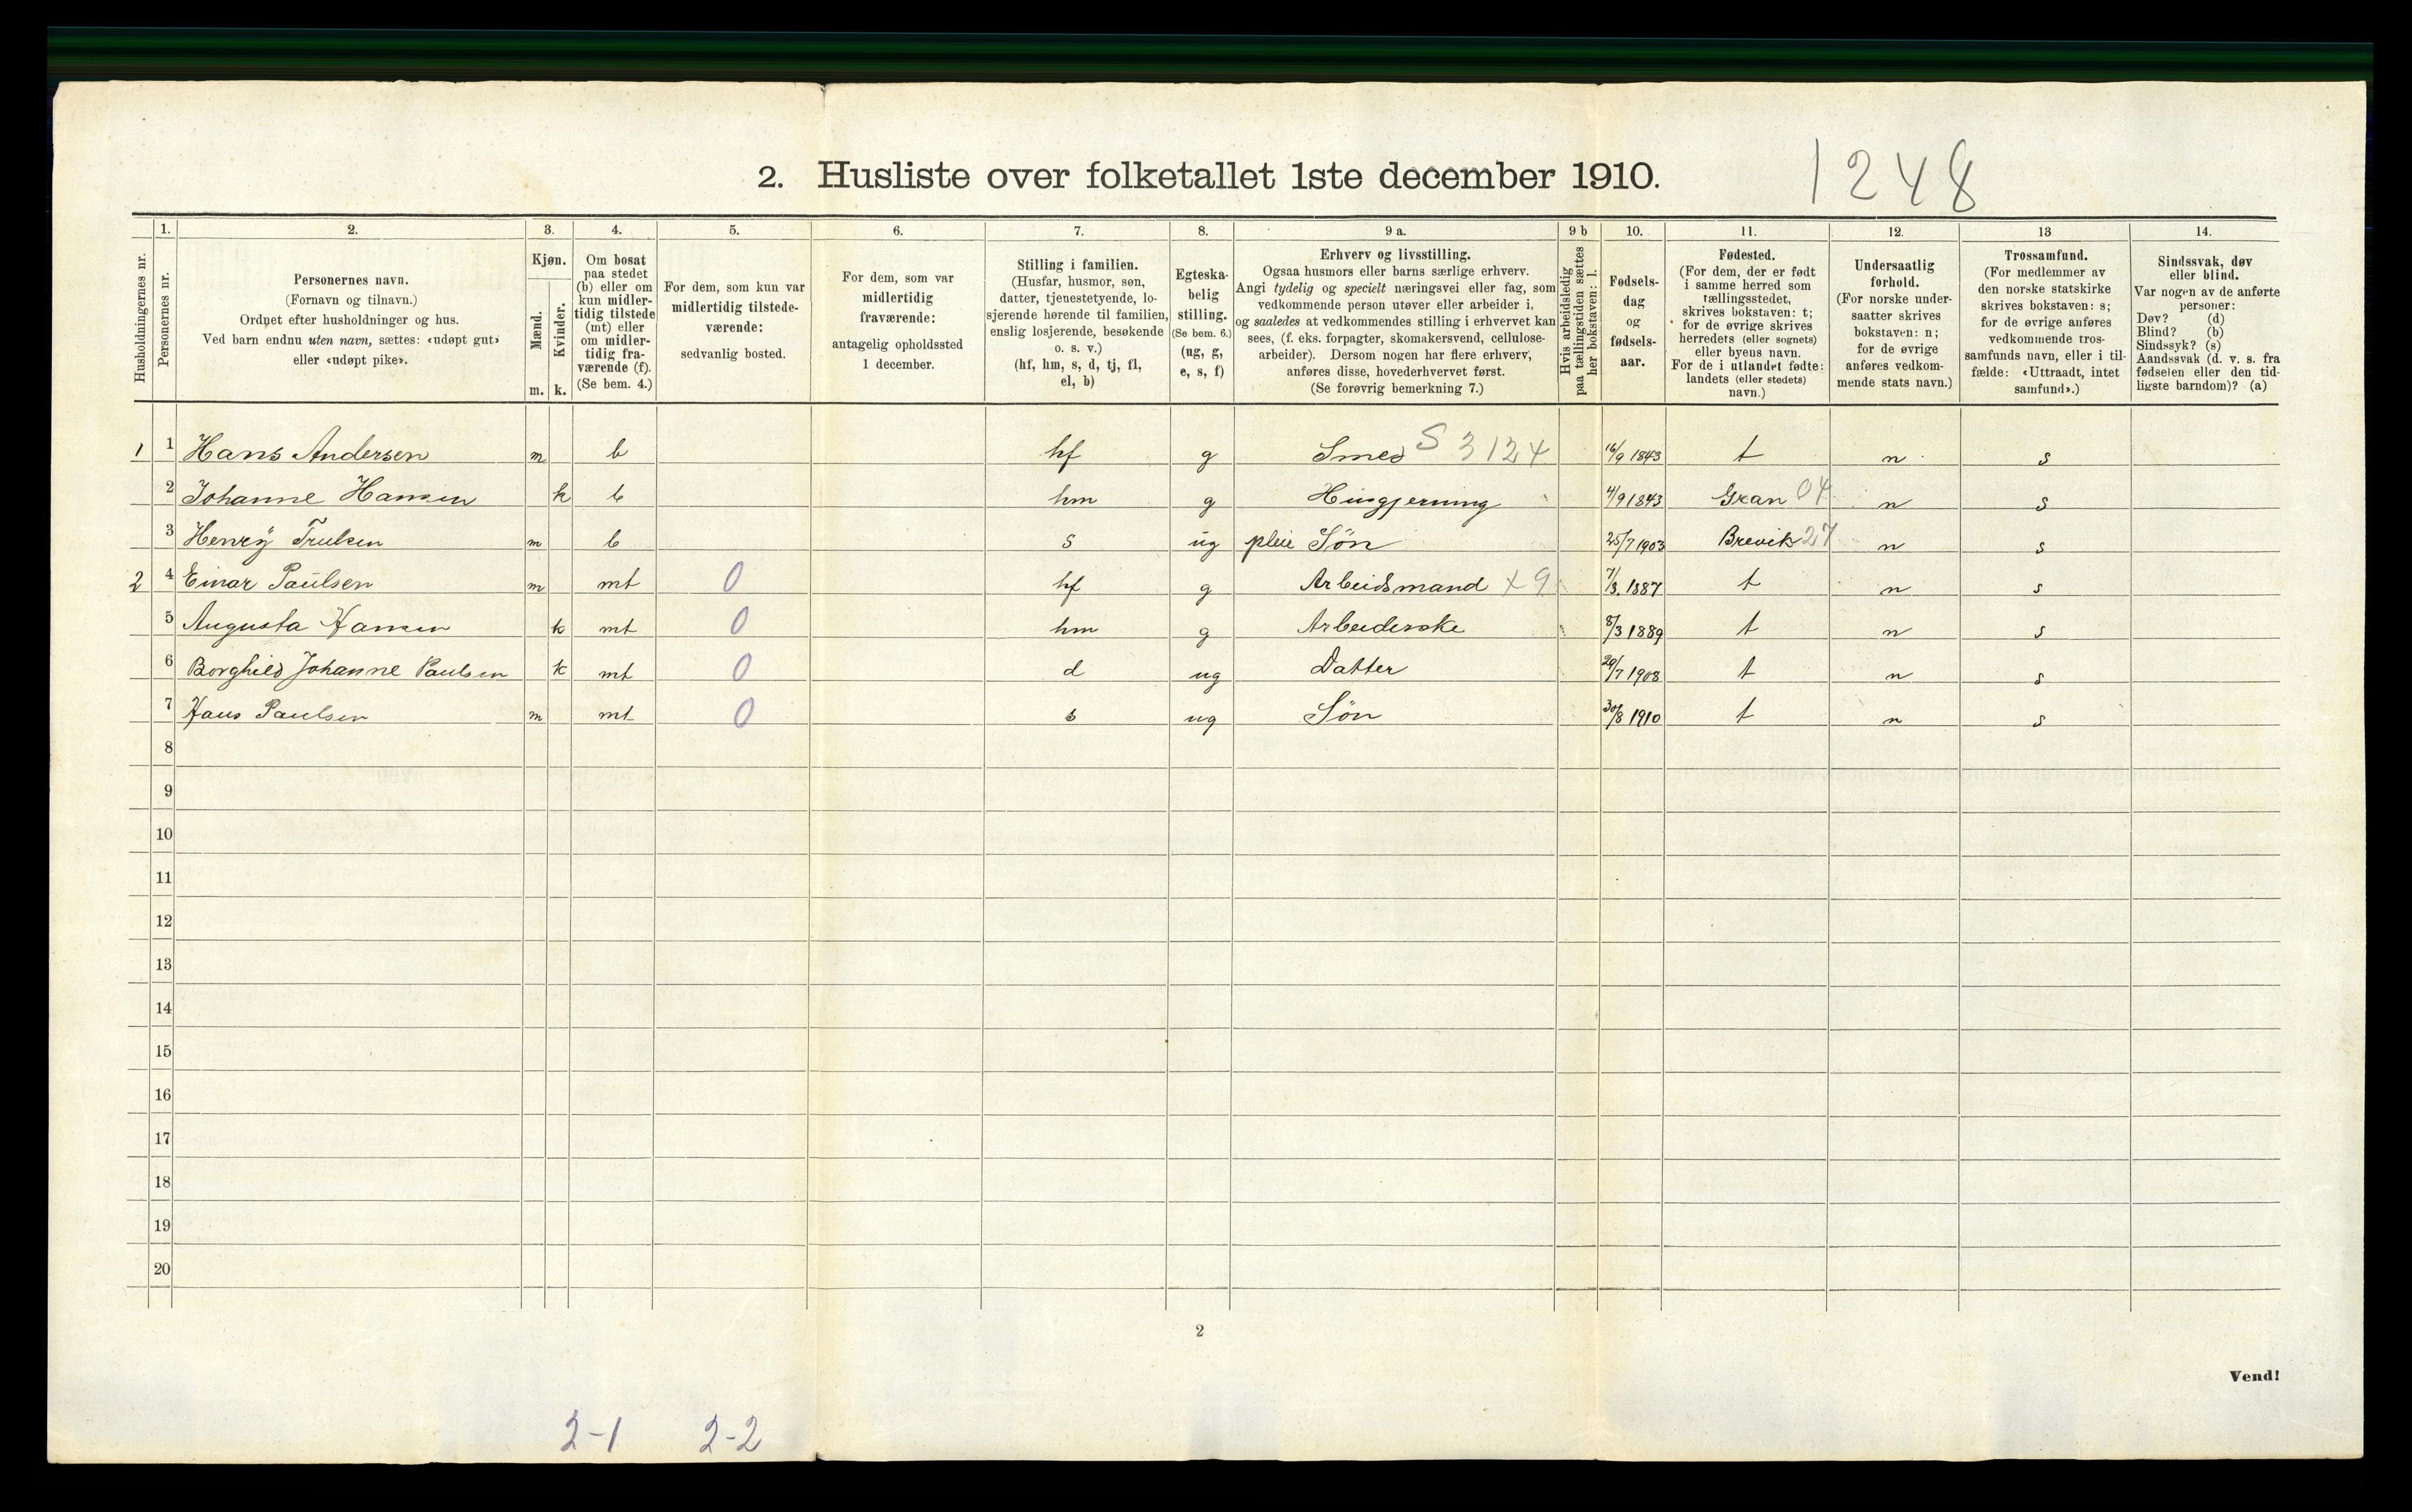 2. Husliste over folketallet 1ste december 1910.
1248
1. 2. 3. 4. 5. 6. 7. 8. 9 a. 9 b 10. 11. 12. 13 14.
Husholdningernes nr.
Personernes nr.
Personernes navn.
(Fornavn og tilnavn.)
Ordnet efter husholdninger og hus.
Ved barn endnu uten navn, sættes: «udøpt gut»
eller «udøpt pike».
Kjøn.
Mænd.
Kvinder.
m. k.
Om bosat
paa stedet
(b) eller om
kun midler-
tidig tilstede
(mt) eller
om midler-
tidig fra-
værende (f).
(Se bem. 4.)
For dem, som kun var
midlertidig tilstede-
værende:
sedvanlig bosted.
For dem, som var
midlertidig
fraværende:
antagelig opholdssted
1 december.
Stilling i familien.
(Husfar, husmor, søn,
datter, tjenestetyende, lo-
sjerende hørende til familien,
enslig losjerende, besøkende
o. s. v.)
(hf, hm, s, d, tj, fl,
el, b)
Egteska-
belig
stilling.
(Se bem. 6.)
(ug, g,
e, s, f)
Erhverv og livsstilling.
Ogsaa husmors eller barns særlige erhverv.
Angi tydelig og specielt næringsvei eller fag, som
vedkommende person utøver eller arbeider i,
og saaledes at vedkommendes stilling i erhvervet kan
sees, (f. eks. forpagter, skomakersvend, cellulose-
arbeider). Dersom nogen har flere erhverv,
anføres disse, hovederhvervet først.
(Se forøvrig bemerkning 7.)
Hvis arbeidsledig
paa tællingstiden sættes
her bokstaven: l.
Fødsels-
dag
og
fødsels-
aar.
Fødested.
(For dem, der er født
i samme herred som
tællingsstedet,
skrives bokstaven: t;
for de øvrige skrives
herredets (eller sognets)
eller byens navn.
For de i utlandet fødte:
landets (eller stedets)
navn.)
Undersaatlig
forhold.
(For norske under-
saatter skrives
bokstaven: n;
for de øvrige
anføres vedkom-
mende stats navn.)
Trossamfund.
(For medlemmer av
den norske statskirke
skrives bokstaven: s;
for de øvrige anføres
vedkommende tros-
samfunds navn, eller i til-
fælde: «Uttraadt, intet
samfund».)
Sindssvak, døv
eller blind.
Var nogen av de anførte
personer:
Døv? (d)
Blind? (b)
Sindssyk? (s)
Aandssvak (d. v. s. fra
fødselen eller den tid-
ligste barndom)? (a)
1 1 Hans Andersen m b hf g Smed S 3124 16/9 1843 t n s
2 Johanne Hansen k b hm g Husgjerning 4/9 1843 Gran 04 n s
3 Henrÿ Trulsen m b s ug pleie Søn 25/7 1903 Brevik 27 n s
2 4 Einar Paulsen m mt 0 hf g Arbeidsmand x 9 7/3. 1887 t n s
5 Augusta Hansen k mt 0 hm g Arbeiderske 8/3 1889 t n s
6 Borghild Johanne Paulsen k mt 0 d ug Datter 29/7 1908 t n s
7 Hans Paulsen m mt 0 s ug Søn 30/8 1910 t n s
8
9
10
11
12
13
14
15
16
17
18
19
20
2
Vend!
2-1 2-2